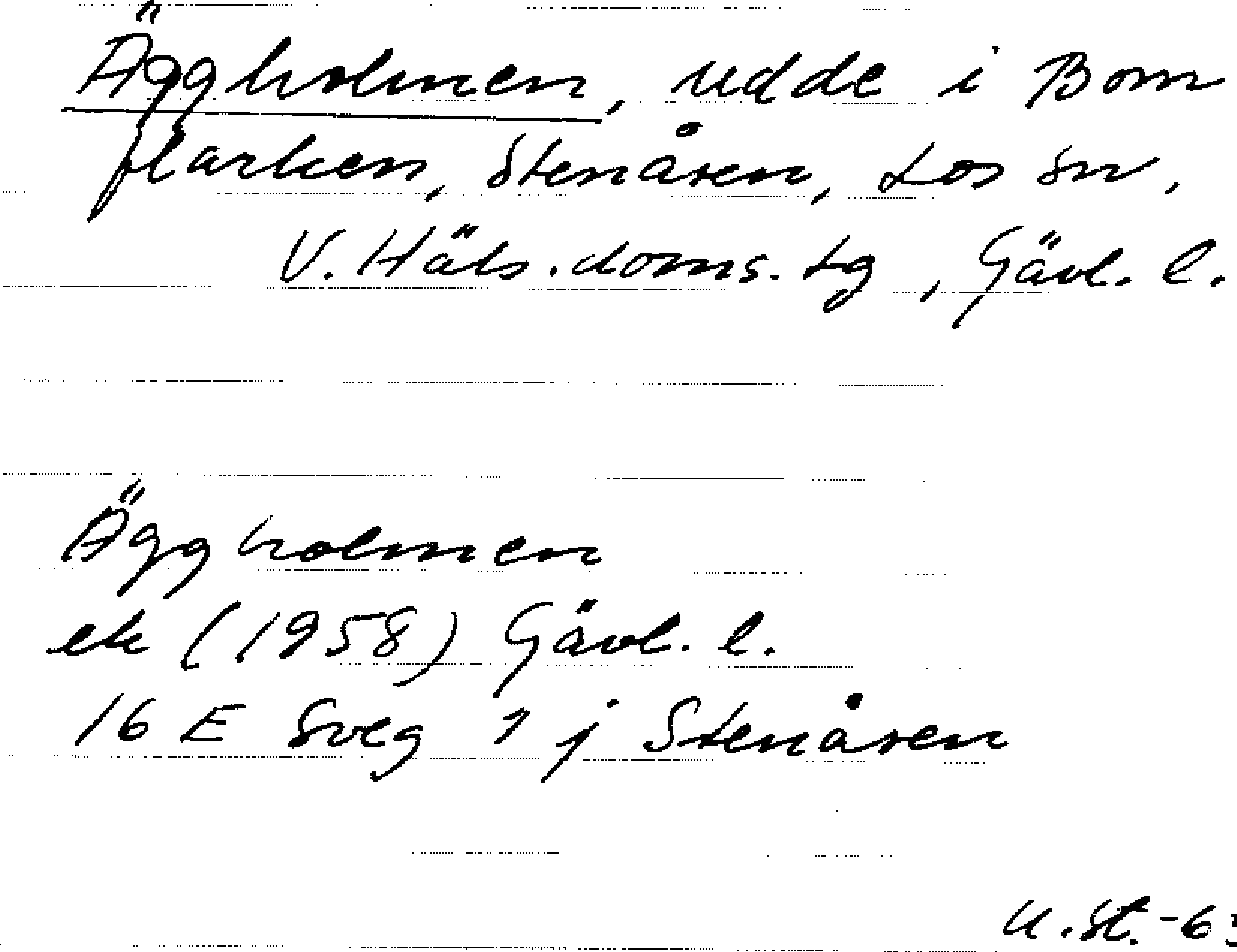 Äggholmen, udde i Bom
flarken, Stenåsen, Los sn,
V. Häls. doms. tg, Gävl. l.
Äggholmen
ek (1958) Gävl. l.
16 E Sveg 1 j Stenåsen
U. St. -6